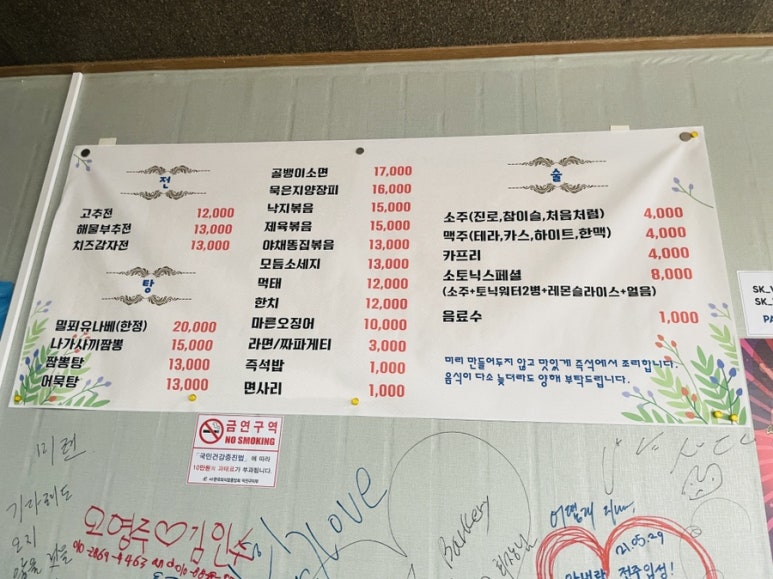 전
고추전 12,000
해물부추전 13,000
치즈감자전 13,000
탕
밀푀유나베(한정) 20,000
나가사끼짬뽕 15,000
짬뽕탕 13,000
어묵탕 13,000
골뱅이소면 17,000
묵은지양장피 16,000
낙지볶음 15,000
제육볶음 15,000
야채똥집볶음 13,000
모듬소세지 13,000
먹태 12,000
한치 12,000
마른오징어 10,000
라면/짜파게티 3,000
즉석밥 1,000
면사리 1,000
술
소주(진로,참이슬,처음처럼) 4,000
맥주(테라,카스,하이트,한맥) 4,000
카프리 4,000
소토닉스페셜 8,000
(소주+토닉워터2병+레몬슬라이스+얼음)
음료수 1,000
미리 만들어두지 않고 맛있게 즉석에서 조리합니다.
음식이 다소 늦더라도 양해 부탁드립니다.
SK_
SK_
PA
금연구역
NO SMOKING
「국민건강증진법」에 따라
10만원의 과태료가 부과됩니다.
미련
기다려도
오지
오영주♡김인수
Love
Battery
어떻게
21.05.29
전주입성!